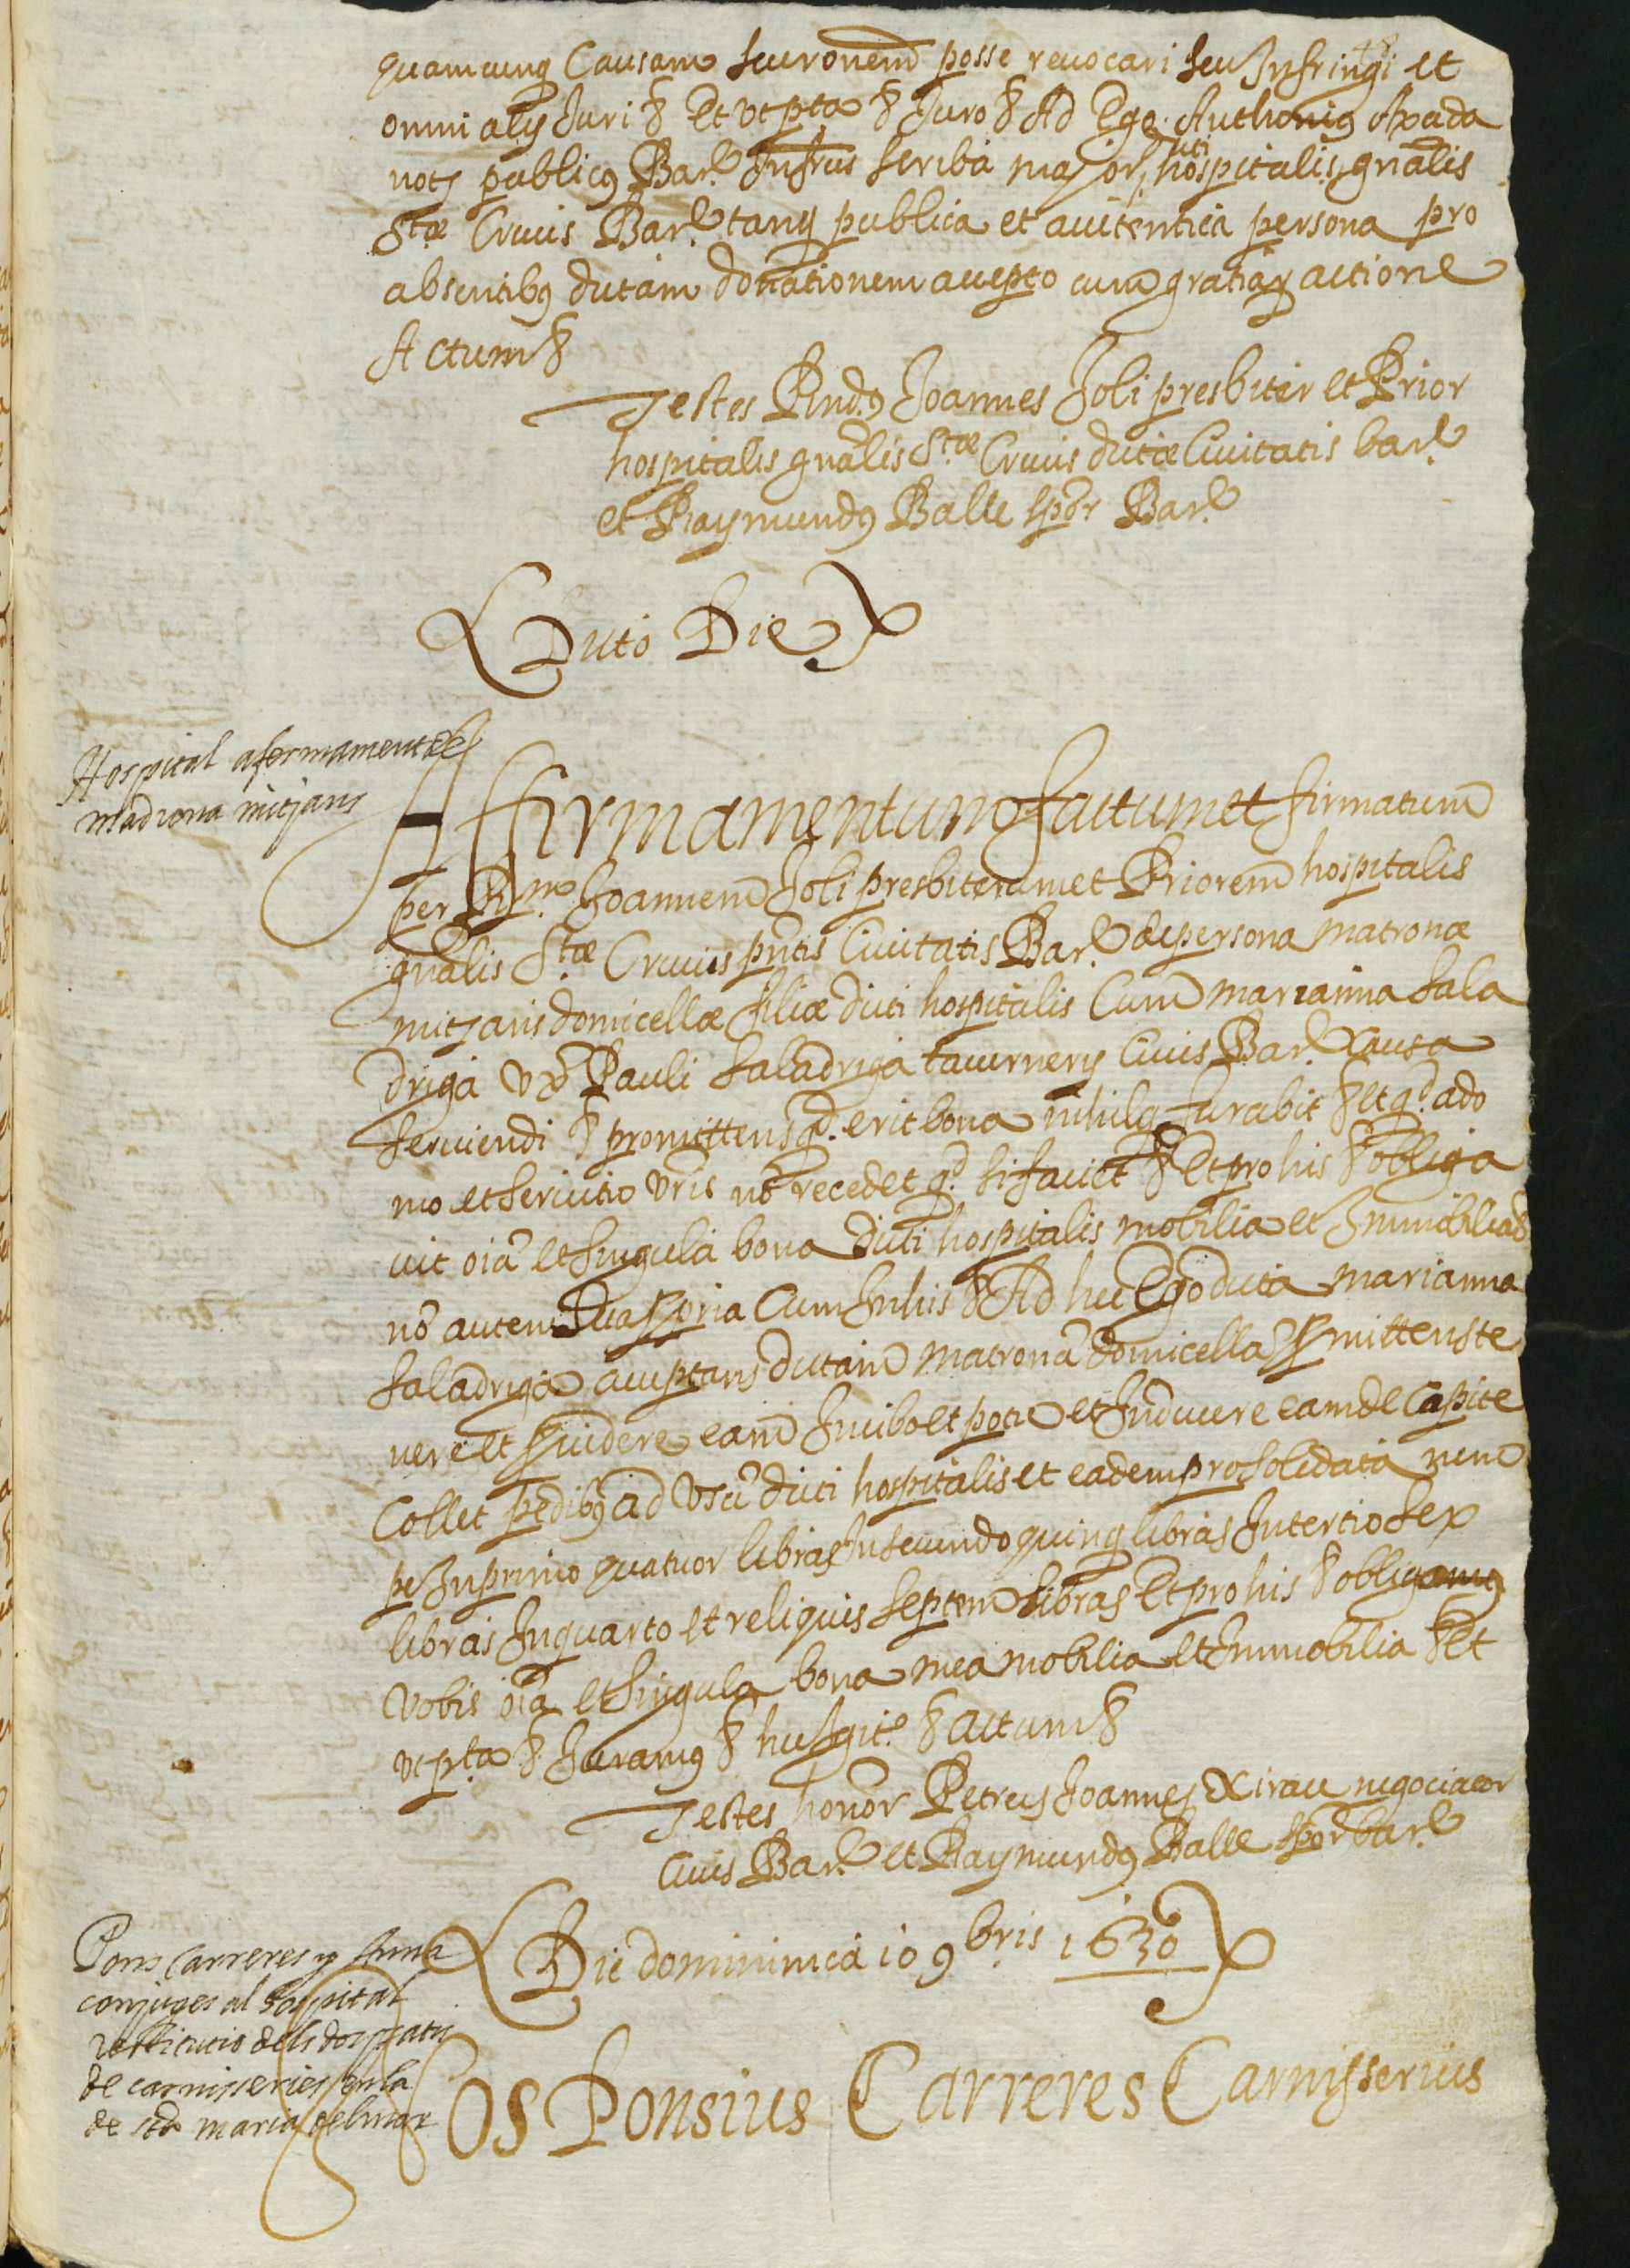 quamcunq Causam seu ronem posse reuocari seu Infringi et
omni alij Juri & Et ut pta & Juro & Ad Ego Anthonig Axada
nots publicg Bar. Infrus scriba major dicti hospitalis gnalis
Stæ Crucis Bar. tanq publica et autentica persona pro
absentibg dictam donationem accepto cum gratiar actione
Actum &
Testes Rndg Joannes Joli presbiter et Prior
hospitalis gnalis Stæ Crucis dictæ Civitatis bar.
et Raymundg Balle scptor Bar.
Dicto Die
Hospital afermament de
madrona mitjans
Affirmamentum factum et firmatum
per Rm. Joannem Joli presbiterum et Priorem hospitalis
gnalis Stæ Crucis pntis Civitatis Bar. de persona matronæ
mitjans domicellæ filiæ dicti hospitalis Cum marianna sala
driga uxo Pauli saladriga tauernerij Civis Bar. causa
seruiendi & promittens qd. erit bona nihilq furabit & et qd. a do
mo et seruitio vris no recedet qd. si fecit & Et pro his & obliga
uit oia et singula bona dicti hospitalis mobilia et Immobilia &
no autem sua ppria Cum In his & Ad hec Ego dicta marianna
saladriga acceptans dictam matrona domicella pmittens te
nere et puidere eam In cibo et potu et Inducere eam de Capite
Collet pedibg ad usu dicti hospitalis et eadem pro soldata nem
pe In primo quatuor libras In secundo quinq libras In tertio sex
libras In quarto et reliquis septem libras Et pro his & obligamg
vobis oia et singula bona mea mobilia et Immobilia & Et
ut pta & Juramg & hec igit. & actum &
Testes honor Petrus Joannes Xirau negociator
Civis Bar. et Raymundg Balle scptor bar.
Die dominica 10 9bris 1630
Pons Carreres y Anna
conjuges al Hospital
restitucio dels despatx
de carnisseries en la
de sta maria del mar
Nos Ponsius Carreres Carnisserius